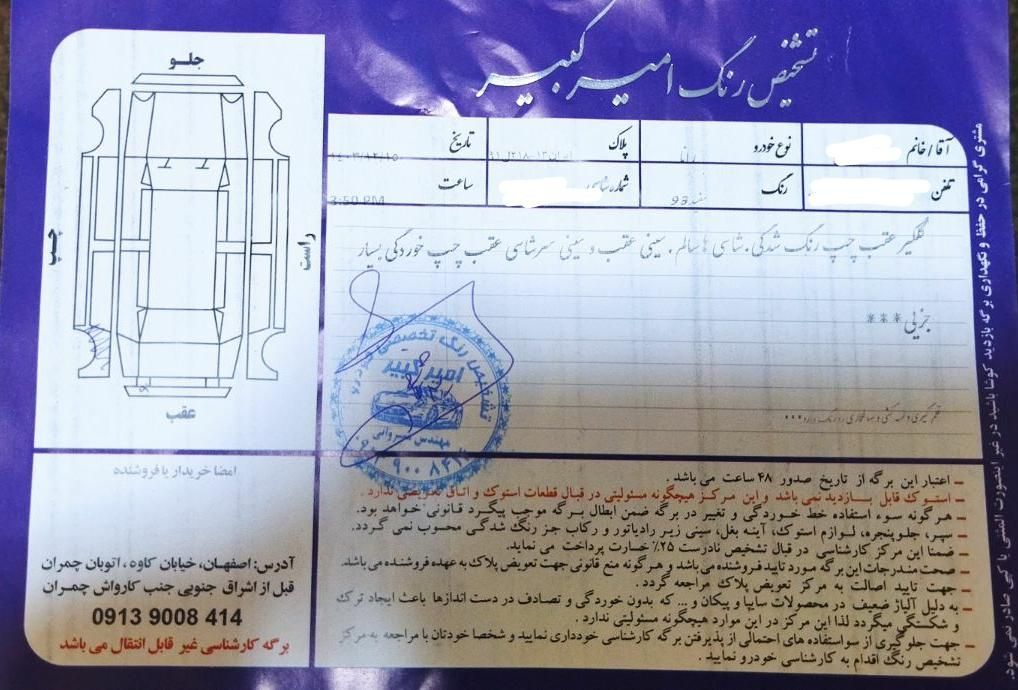 تشخیص رنگ امیر کبیر
آقا/خانم
نوع خودرو رانا
پلاک ایران ۱۳-۲۱۸ل۹۱
تاریخ ۱۴۰۳/۱۲/۱۵
تلفن
رنگ سفید 99
شماره شاسی
ساعت 3:50 PM
گلگیر عقب چپ رنگ شدگی. شاسی ها سالم. سینی عقب و سینی سرشاسی عقب چپ خوردگی بسیار
جزیی ***
جلو
چپ
راست
عقب
تشخیص رنگ تخصصی خودرو
امیر کبیر
مهندس
امضا خریدار یا فروشنده
آدرس: اصفهان، خیابان کاوه، اتوبان چمران
قبل از اشراق جنوبی جنب کارواش چمران
0913 9008 414
برگه کارشناسی غیر قابل انتقال می باشد
_ اعتبار این برگه از تاریخ صدور ۴۸ ساعت می باشد .
_ استوک قابل بازدید نمی باشد و این مرکز هیچگونه مسئولیتی در قبال قطعات استوک و اتاق تعویضی ندارد .
_ هر گونه سوء استفاده خط خوردگی و تغییر در برگه ضمن ابطال برگه موجب پیگرد قانونی خواهد بود.
_ سپر، جلو پنجره، لوازم استوک، آینه بغل، سینی زیر رادیاتور و رکاب جز رنگ شدگی محسوب نمی گردد.
_ ضمنا این مرکز کارشناسی در قبال تشخیص نادرست ۲۵٪ خسارت پرداخت می نماید.
_ صحت مندرجات این برگه مورد تایید فروشنده می باشد و هرگونه منع قانونی جهت تعویض پلاک به عهده فروشنده می باشد.
_ جهت تایید اصالت به مرکز تعویض پلاک مراجعه گردد .
_ به دلیل آلیاژ ضعیف در محصولات سایپا و پیکان و... که بدون خوردگی و تصادف در دست اندازها باعث ایجاد ترک
و شکستگی میگردد لذا این مرکز در این موارد هیچگونه مسئولیتی ندارد .
_ جهت جلوگیری از سواستفاده های احتمالی از پذیرفتن برگه کارشناسی خودداری نمایید و شخصا خودتان با مراجعه به مرکز
تشخیص رنگ اقدام به کارشناسی خودرو نمایید .
مشتری گرامی در حفظ و نگهداری برگه بازدید کوشا باشید در غیر اینصورت المثنی یا کپی صادر نمی شود.